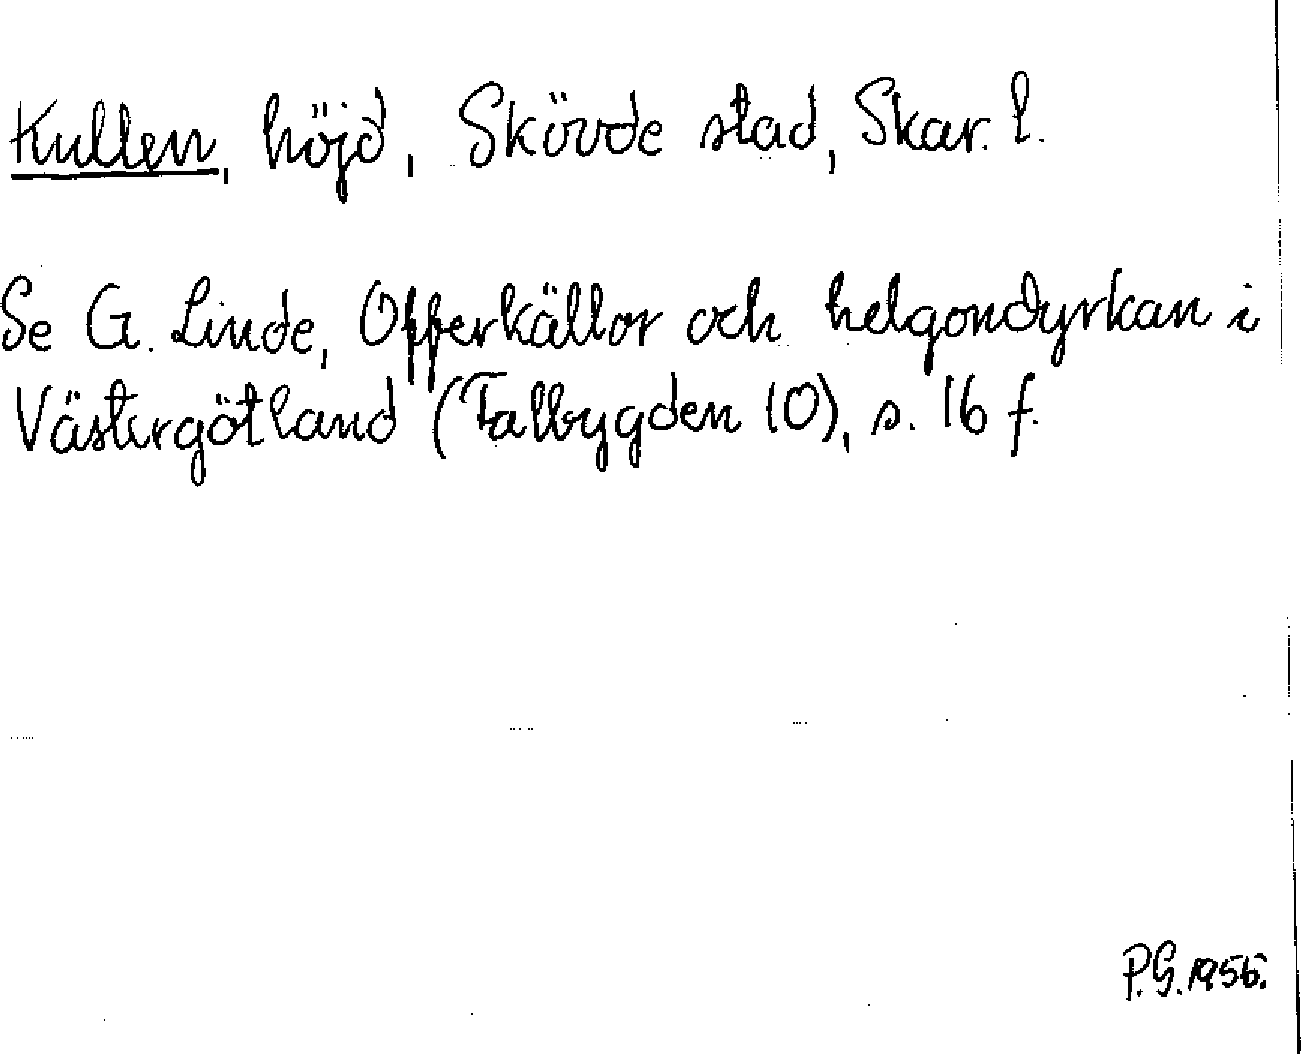 Kullen, höjd, Skövde stad, Skar. l.
Se G. Linde, Offerkällor och helgondyrkan i
Västergötland (Falbygden 10), s. 16 f.
P.G. 1956.